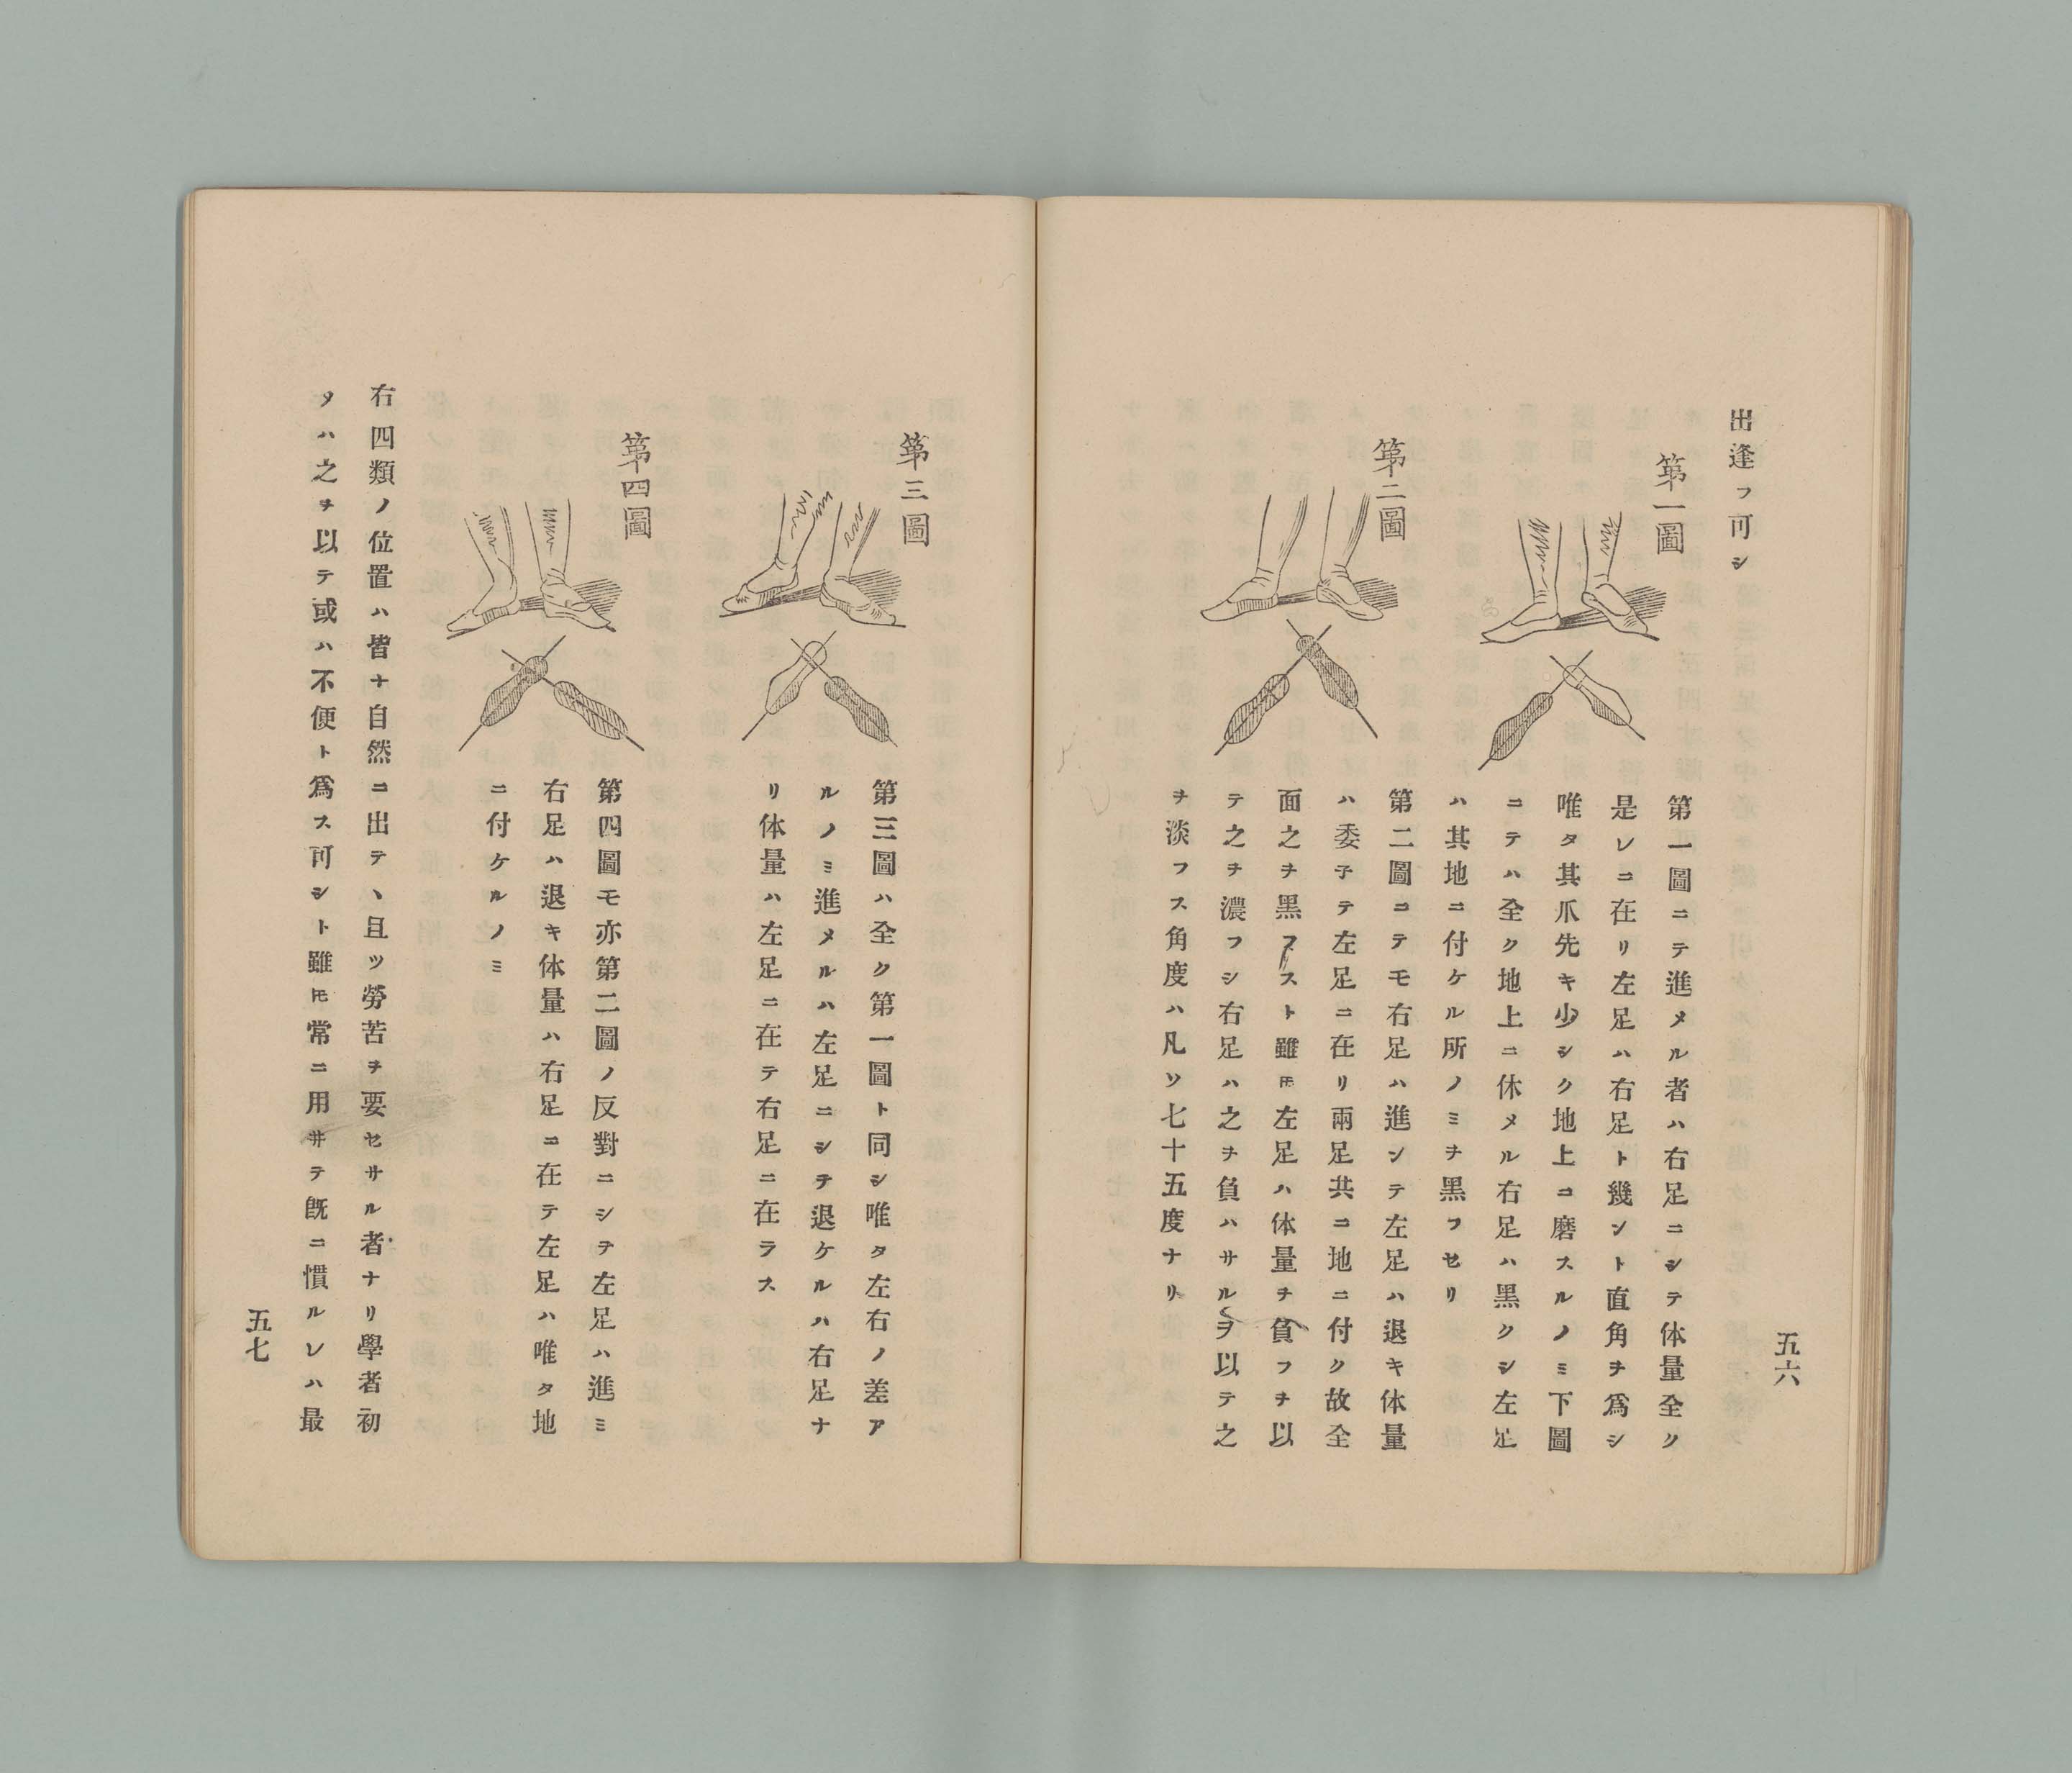 五六
出逢フ可シ
第一圖
第一圖ニテ進メル者ハ右足ニシテ体量全ク
是レニ在リ左足ハ右足ト幾ント直角ヲ爲シ
唯タ其爪先キ少シク地上ニ磨スルノミ下圖
ニテハ全ク地上ニ休メル右足ハ黒クシ左足
ハ其地ニ付ケル所ノミヲ黒フセリ
第二圖
第二圖ニテモ右足ハ進ンテ左足ハ退キ体量
ハ委子テ左足ニ在リ兩足共ニ地ニ付ク故全
面之ヲ黒フスト雖𪜈左足ハ体量ヲ負フヲ以
テ之ヲ濃フシ右足ハ之ヲ負ハサルヲ以テ之
ヲ淡フス角度ハ凡ソ七十五度ナリ
第三圖
第三圖ハ全ク第一圖ト同シ唯タ左右ノ差ア
ルノミ進メルハ左足ニシテ退ケルハ右足ナ
リ体量ハ左足ニ在テ右足ニ在ラス
第四圖
第四圖モ亦第二圖ノ反對ニシテ左足ハ進ミ
右足ハ退キ体量ハ右足ニ在テ左足ハ唯タ地
ニ付ケルノミ
右四類ノ位置ハ皆ナ自然ニ出テ、且ツ勞苦ヲ要セサル者ナリ學者初
メハ之ヲ以テ或ハ不便ト爲ス可シト雖𪜈常ニ用井テ既ニ慣ルレハ最
五七